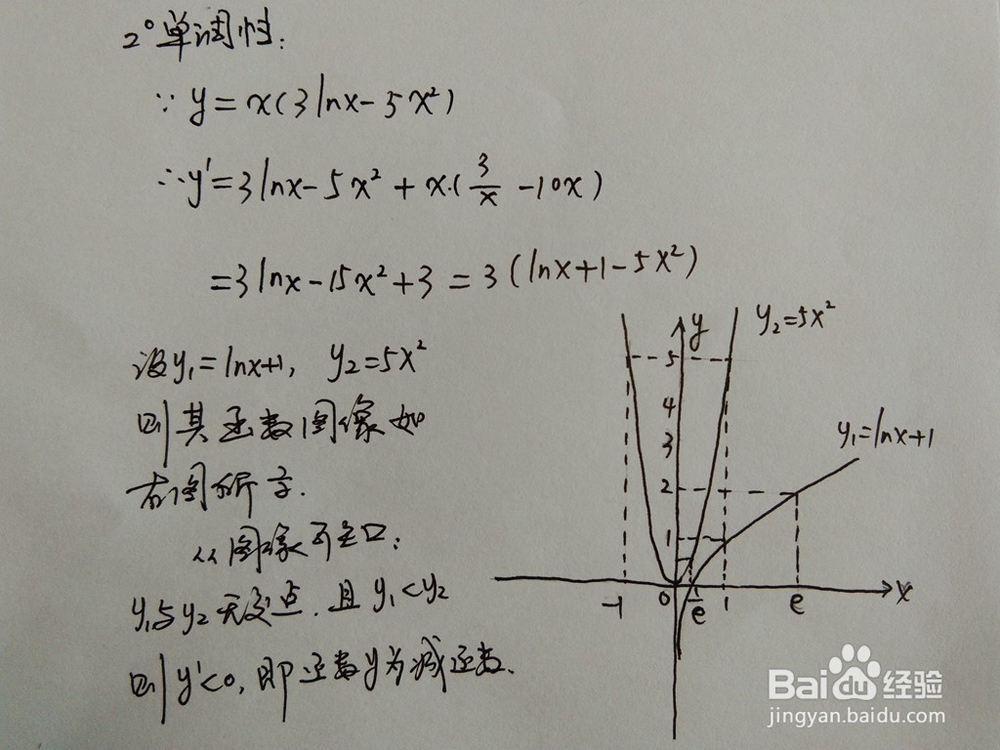 2° 单调性:
∵ y = x(3lnx - 5x²)
∴ y' = 3lnx - 5x² + x·(3/x - 10x)
= 3lnx - 15x² + 3 = 3(lnx + 1 - 5x²)
设 y₁ = lnx+1, y₂ = 5x²
则其函数图像如
右图所示.
从图像可知:
y₁与y₂无交点, 且 y₁ < y₂
则 y' < 0, 即函数y为减函数.
y
y₂ = 5x²
5
4
3
y₁ = lnx+1
2
1
-1 0 1/e 1 e x
Baidu 经验
jingyan.baidu.com